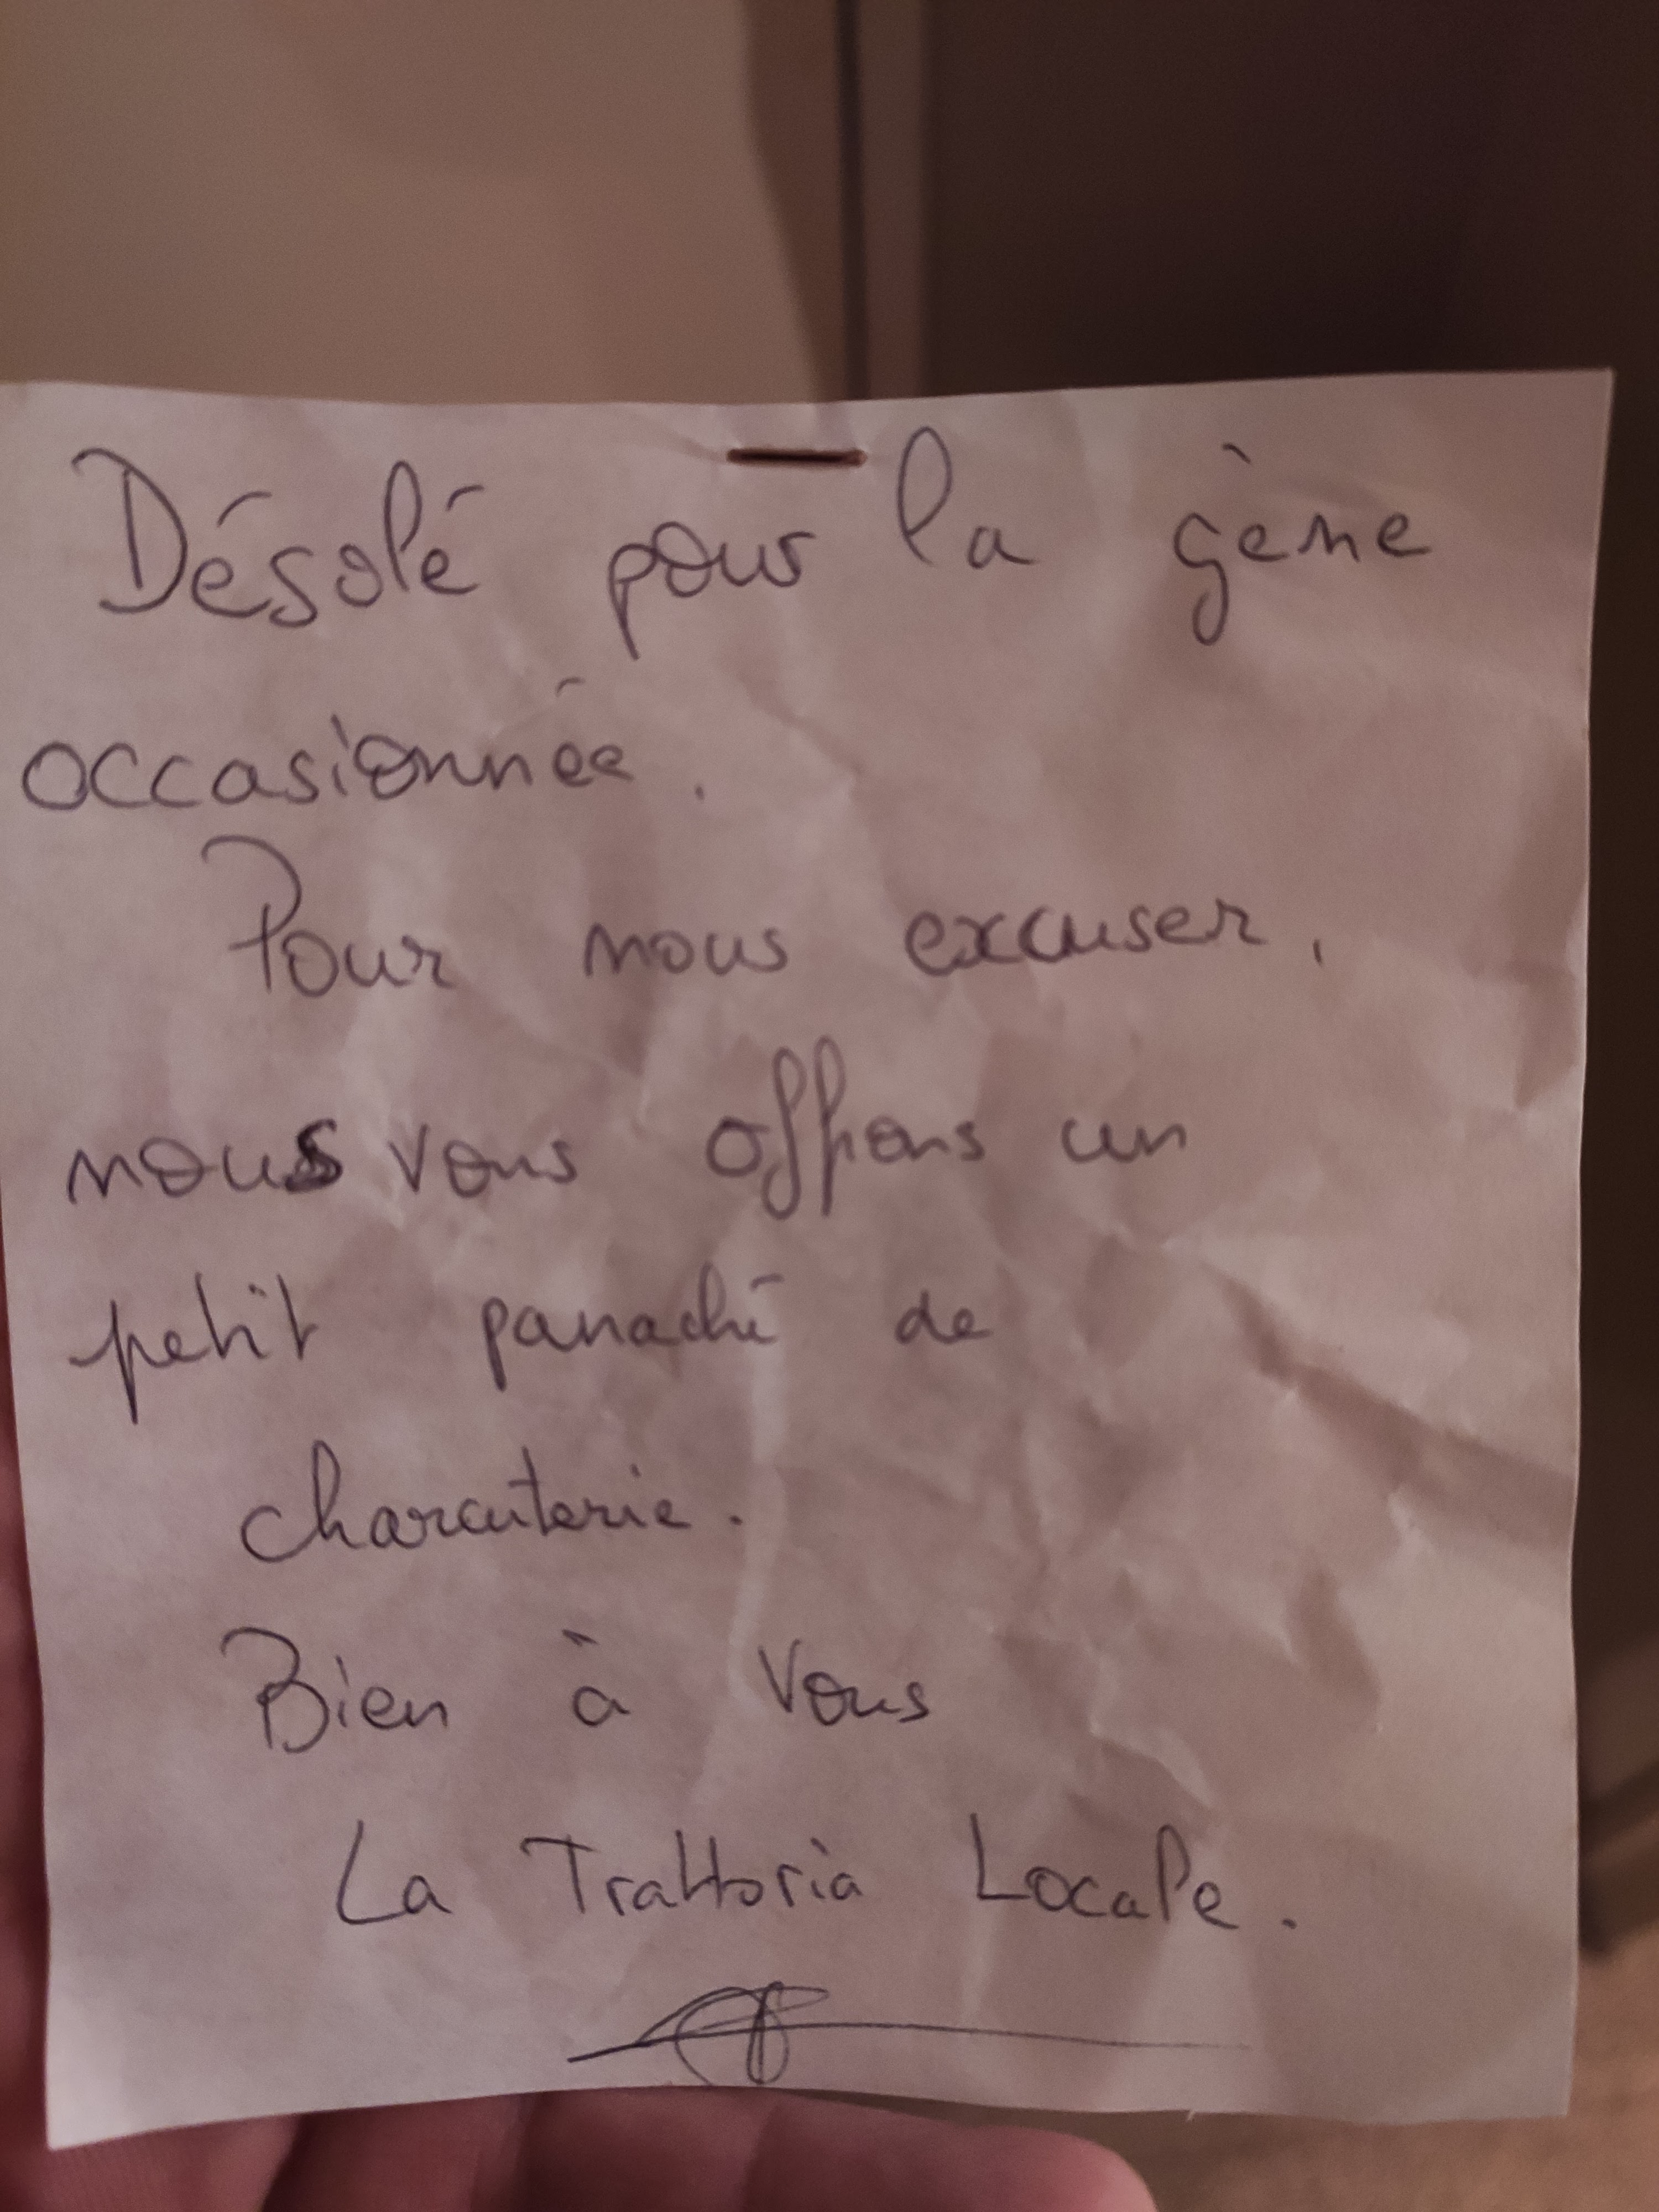 Désolé pour la gène
occasionnée.
Pour nous excuser,
nous vous offrons un
petit panaché de
charcuterie.
Bien à vous
La Trattoria Locale.